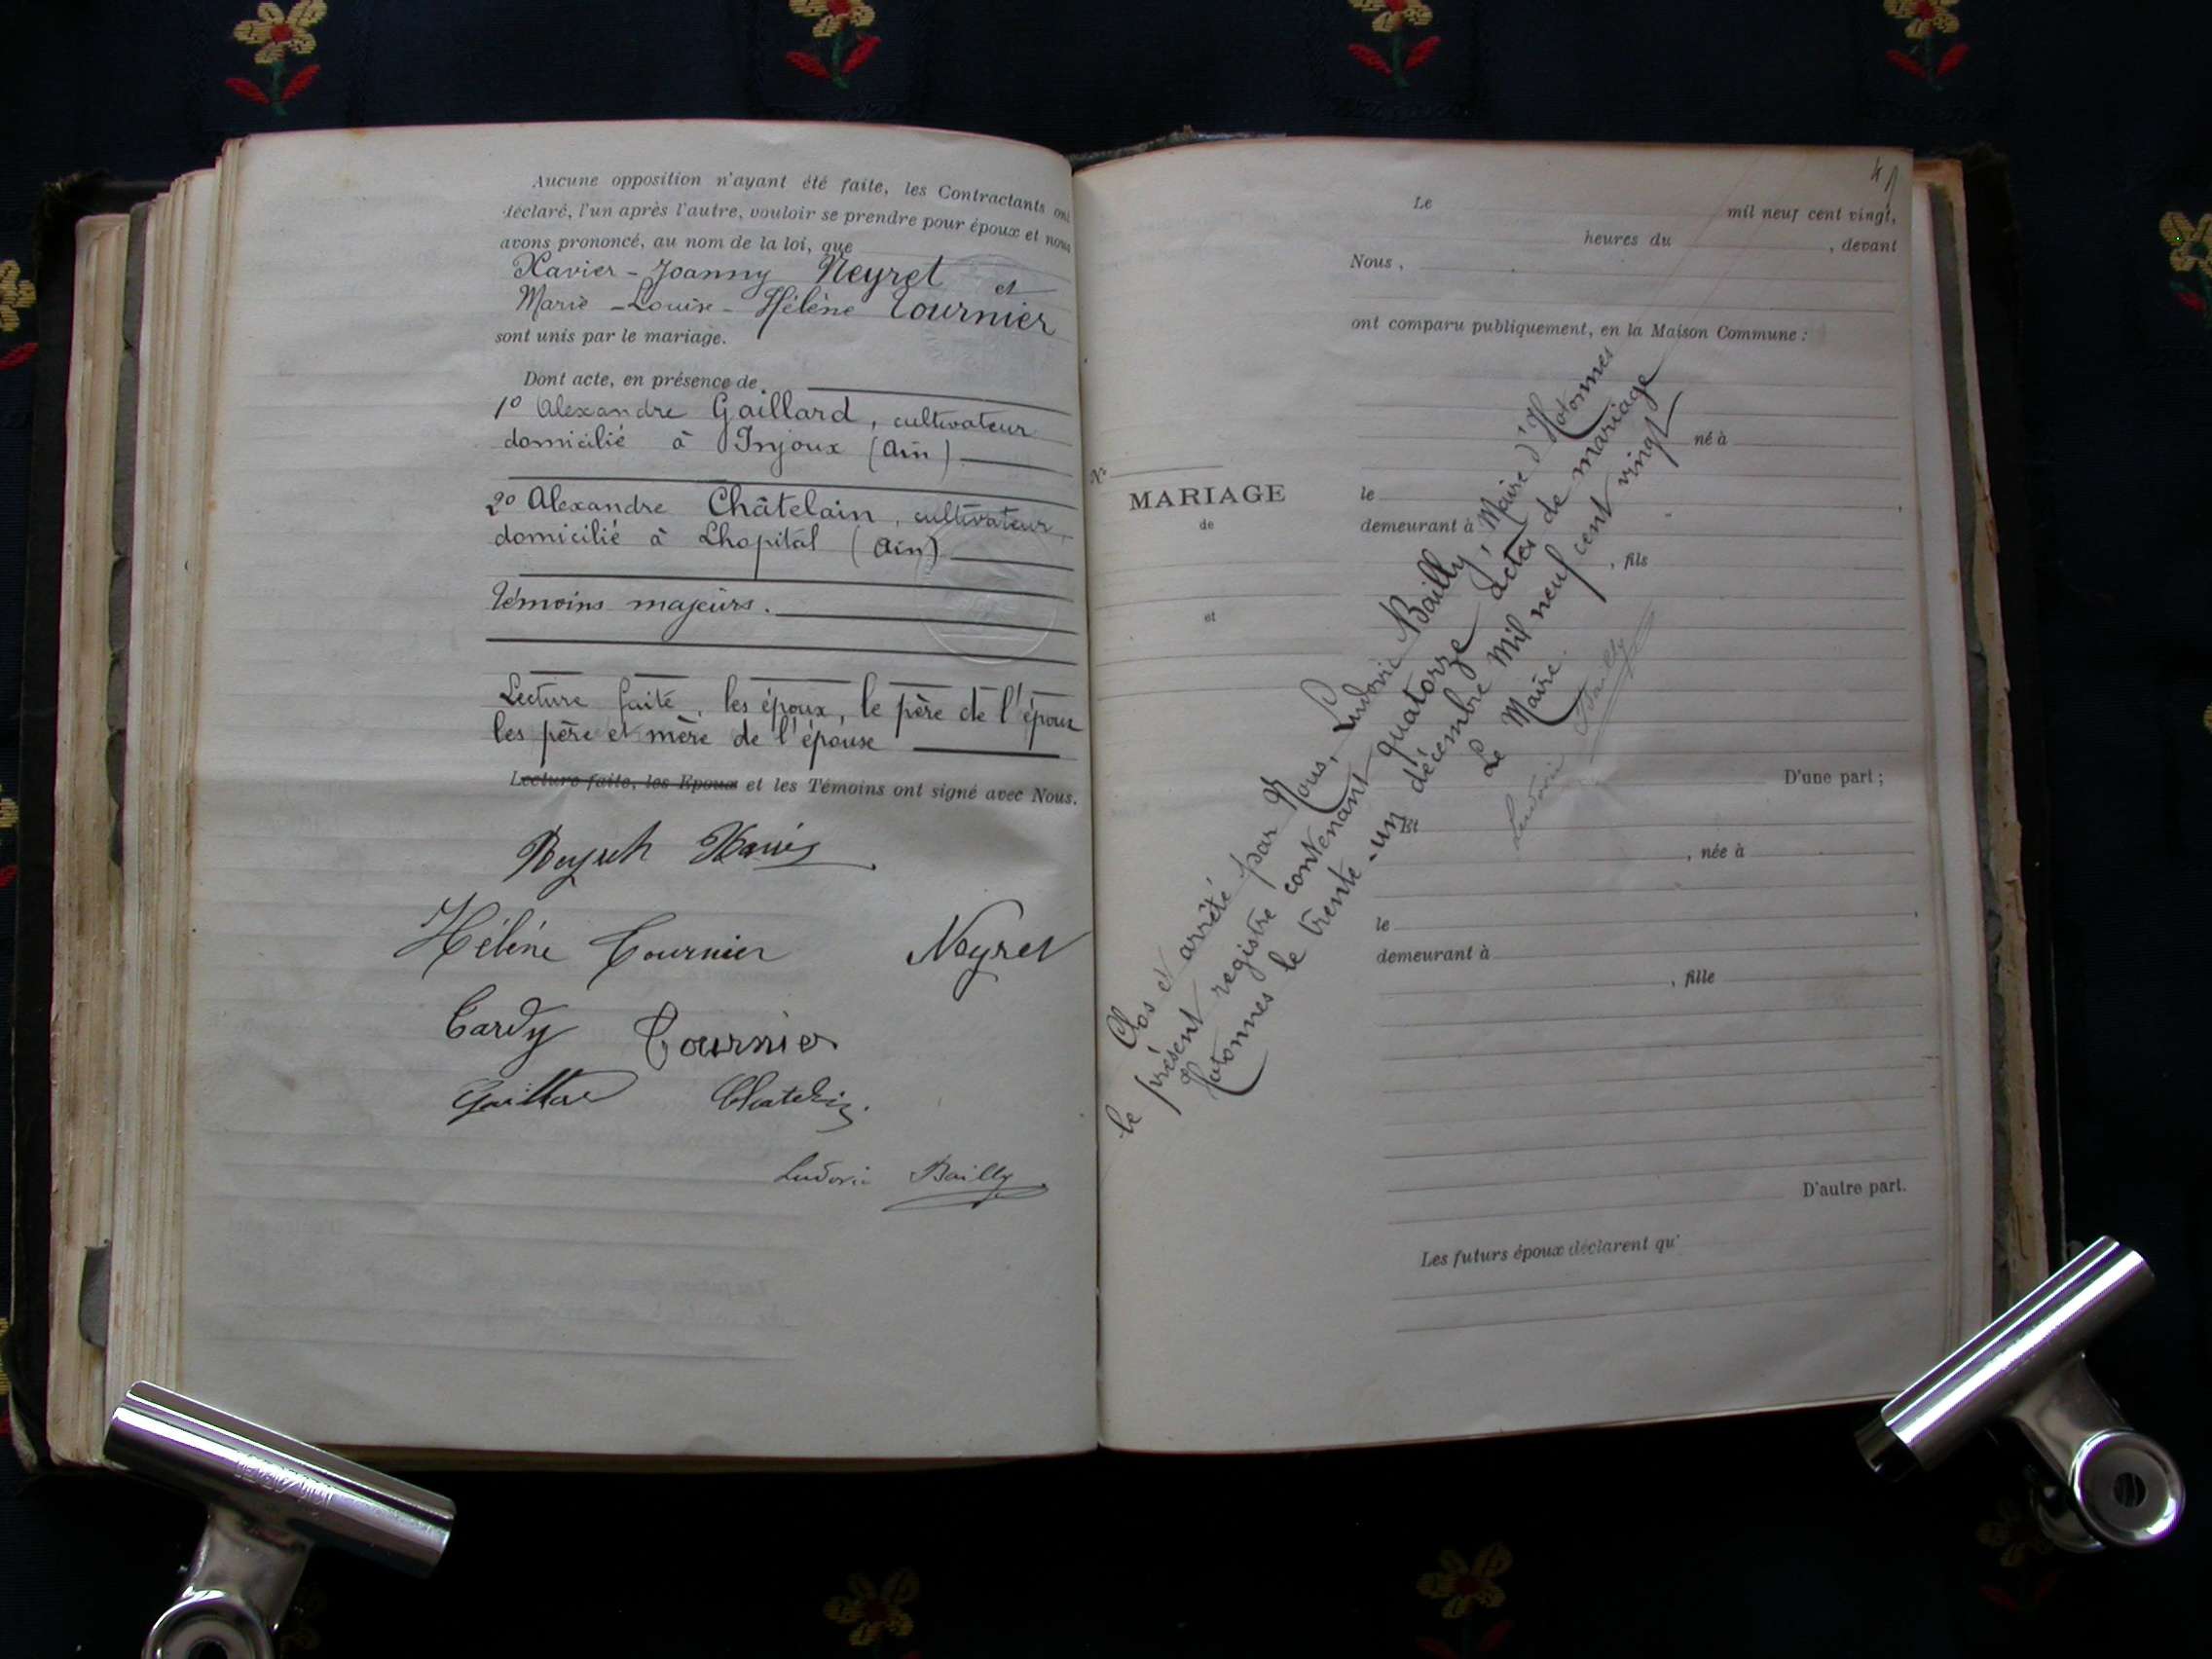 Aucune opposition n'ayant été faite, les Contractants ont
déclaré, l'un après l'autre, vouloir se prendre pour époux et nous
avons prononcé, au nom de la loi, que
Xavier - Joanny Neyret et
Marie - Louise - Hélène Tournier
sont unis par le mariage.
Dont acte, en présence de
1º Alexandre Gaillard, cultivateur
domicilié à Injoux (Ain)
2º Alexandre Châtelain, cultivateur,
domicilié à Lhopital (Ain)
Témoins majeurs.
Lecture faite, les époux, le père de l'époux
les père et mère de l'épouse
Lecture faite, les Epoux et les Témoins ont signé avec Nous.
Neyret Xavier
Hélène Tournier Neyret
Cardy Tournier
Gaillard Chatelain
Ludovic Bailly
Le mil neuf cent vingt,
heures du , devant
Nous,
ont comparu publiquement, en la Maison Commune :
né à
Nº
MARIAGE
de
et
le
demeurant à
, fils
D'une part ;
Et
, née à
le
demeurant à
, fille
D'autre part.
Les futurs époux déclarent qu'
Clos et arrêté par Nous, Ludovic Bailly, Maire d'Hotonnes
le présent registre contenant quatorze actes de mariage
Hotonnes le trente-un décembre mil neuf cent vingt
Le Maire.
Ludovic Bailly